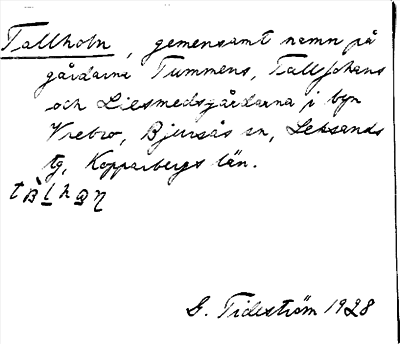 Tallholn, gemensamt namn på
gårdarna Tummens, Tall Johans
och Liesmedsgårdarna i byn
Vrebro, Bjursås sn, Leksands
tg, Kopparbergs län.
G. Tideström 1928